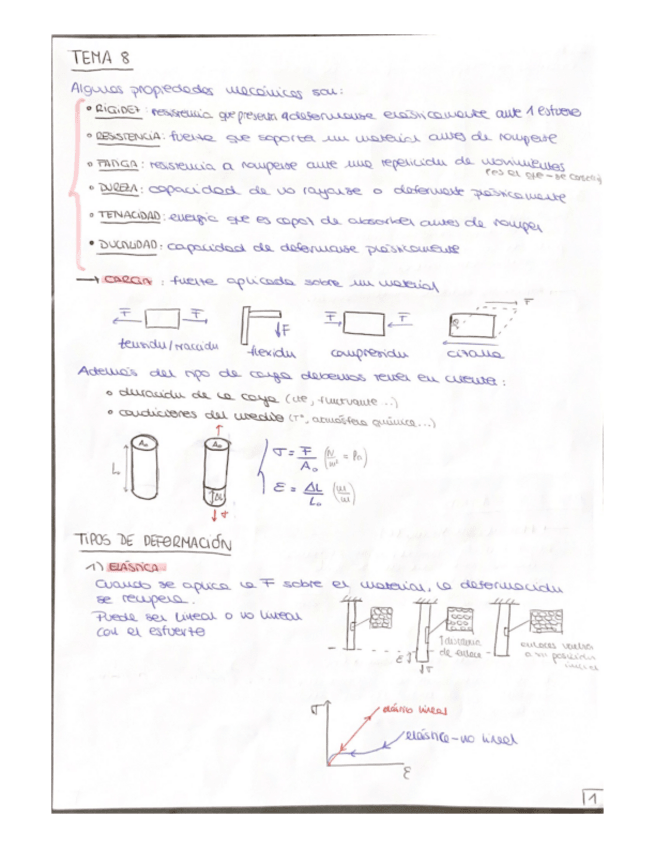 TEMA 8
Algunas propiedades mecánicas son:
• RIGIDEZ: resistencia que presenta a deformarse elásticamente ante 1 esfuerzo
• RESISTENCIA: fuerza que soporta un material antes de romperse
• FATIGA: resistencia a romperse ante una repetición de movimientos
• DUREZA: capacidad de no rayarse o deformarse plásticamente
• TENACIDAD: energía que es capaz de absorber antes de romper
• DUCTILIDAD: capacidad de deformarse plásticamente
→ CARGA: fuerza aplicada sobre un material
F F F F F F
tensión/tracción flexión compresión cizalla
Además del tipo de carga debemos tener en cuenta:
• duración de la carga (cte, fluctuante...)
• condiciones del medio (Tª, atmósfera química...)
A₀ A₀
L ΔL
σ = F/A₀ (N/m² = Pa)
ε = ΔL/L₀ (m/m)
TIPOS DE DEFORMACIÓN
1) ELÁSTICA
Cuando se aplica la F sobre el material, la deformación
se recupera.
Puede ser lineal o no lineal
con el esfuerzo
ε σ
1 distancia
de enlace
enlaces vuelven
a su posición
inicial
σ
elástico lineal
elástico-no lineal
ε
1